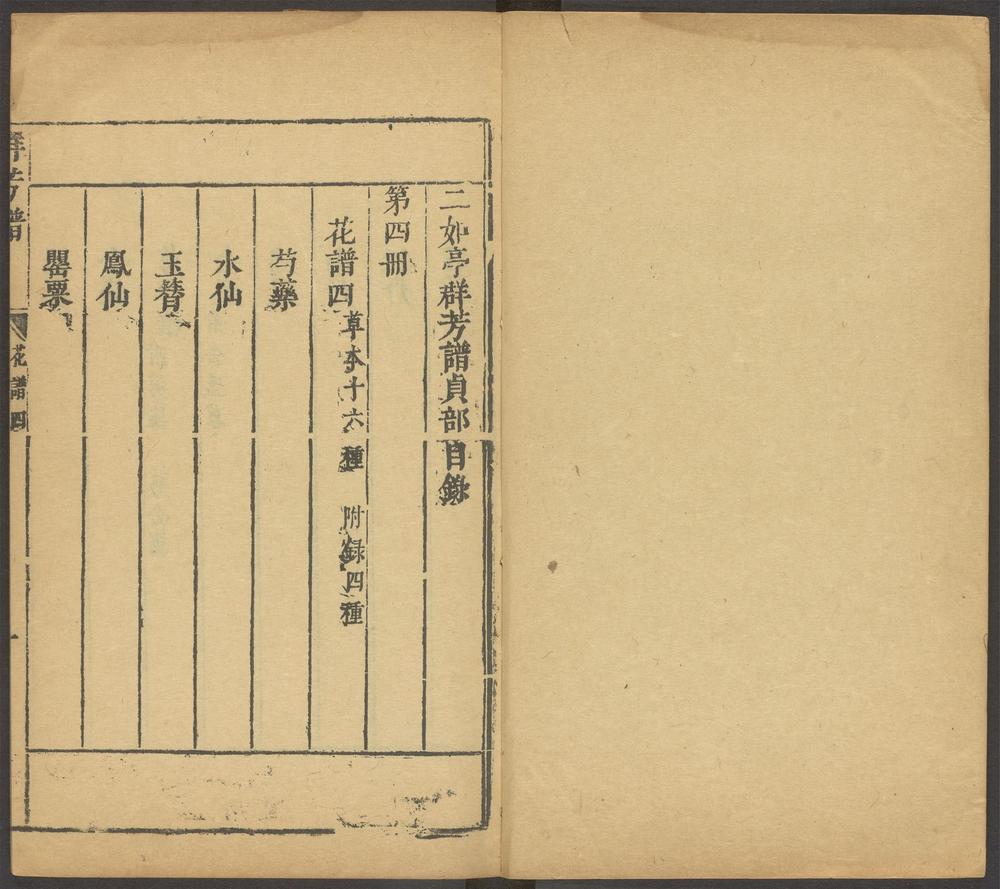 二如亭群芳譜貞部目錄
第四冊
花譜四 草本十六種 附録四種
芍藥
水仙
玉簪
鳳仙
罌粟
群芳譜
花譜四
一